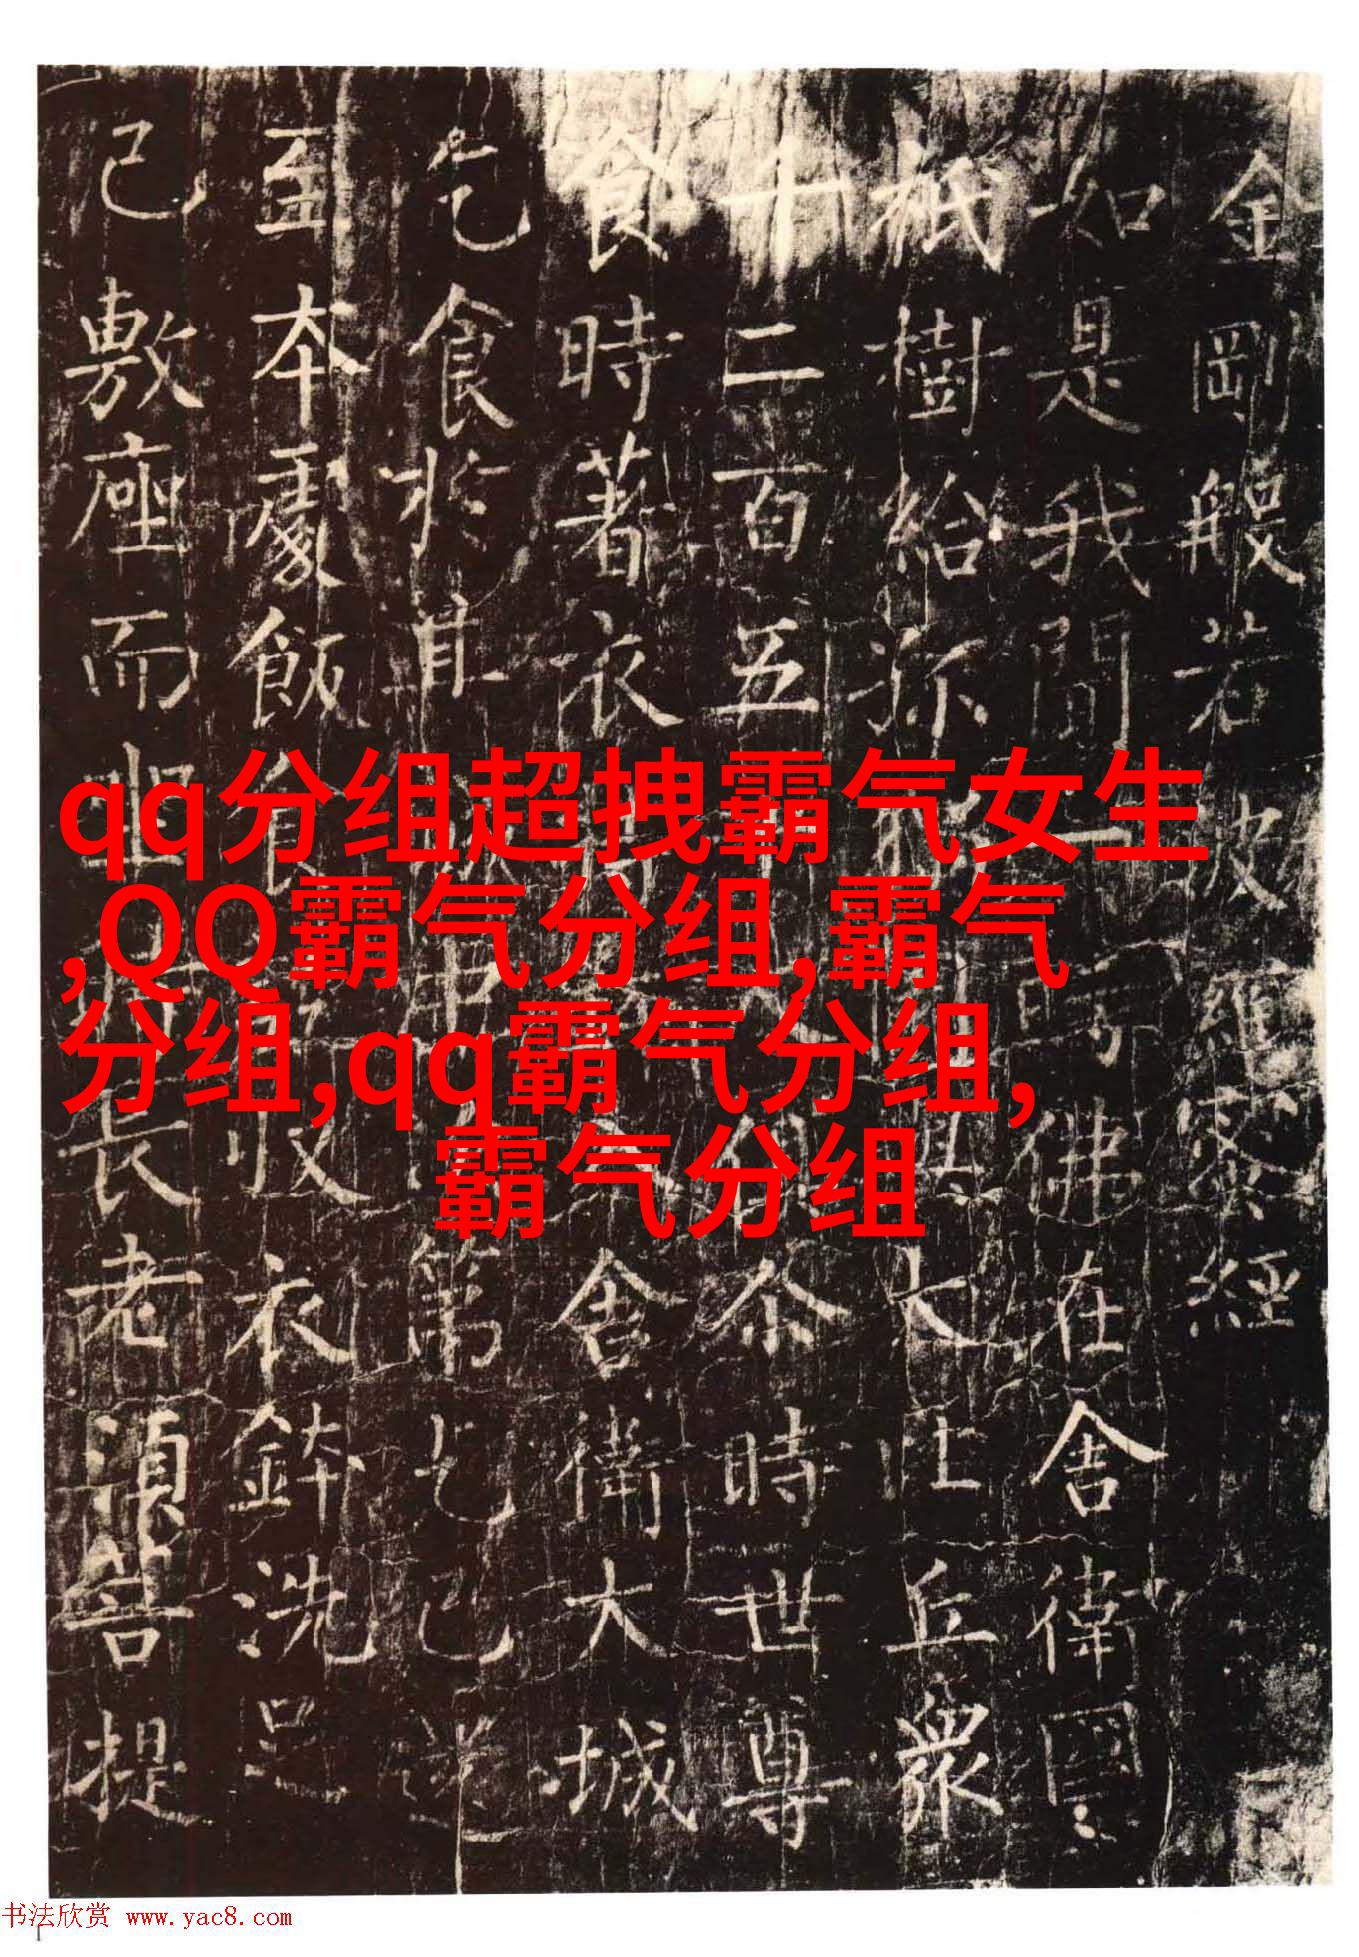 金剛般若波羅蜜經
如是我聞一時佛在舍衛國
祇樹給孤大比丘衆
十二百五十人俱尒時世尊
食時著衣持入舍衛大城
乞食於其城中次第乞已還
至本處飯食收衣鉢洗足
已敷座而坐時長老湏菩提
qq分组超拽霸气女生
,QQ霸气分组,霸气
分组,qq霸气分组,
霸气分组
书法欣赏 www.yac8.com